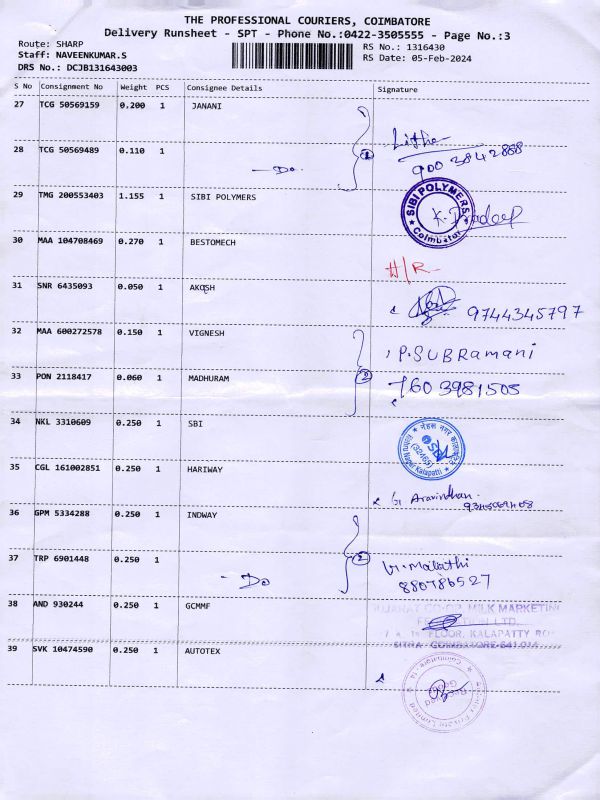 THE PROFESSIONAL COURIERS, COIMBATORE
Delivery Runsheet - SPT - Phone No.:0422-3505555 - Page No.:3
Route: SHARP
RS No.: 1316430
Staff: NAVEENKUMAR.S
RS Date: 05-Feb-2024
DRS No.: DCJB131643003
S No Consignment No Weight PCS Consignee Details Signature
27 TCG 50569159 0.200 1 JANANI
28 TCG 50569489 0.110 1 Do
29 TMG 200553403 1.155 1 SIBI POLYMERS SIBI POLYMERS Coimbatore
30 MAA 104708469 0.270 1 BESTOMECH H/R
31 SNR 6435093 0.050 1 AKASH 9744345797
32 MAA 600272578 0.150 1 VIGNESH P.SUBRamani
33 PON 2118417 0.060 1 MADHURAM 760 3981505
34 NKL 3310609 0.250 1 SBI
35 CGL 161002851 0.250 1 HARIWAY G. Aravindhan
36 GPM 5334288 0.250 1 INDWAY
37 TRP 6901448 0.250 1 Do Malathi
38 AND 930244 0.250 1 GCMMF GUJARAT CO-OP. MILK MARKETING
FLOOR, KALAPATTY
COIMBATORE-641 014
39 SVK 10474590 0.250 1 AUTOTEX Private Limited Coimbatore